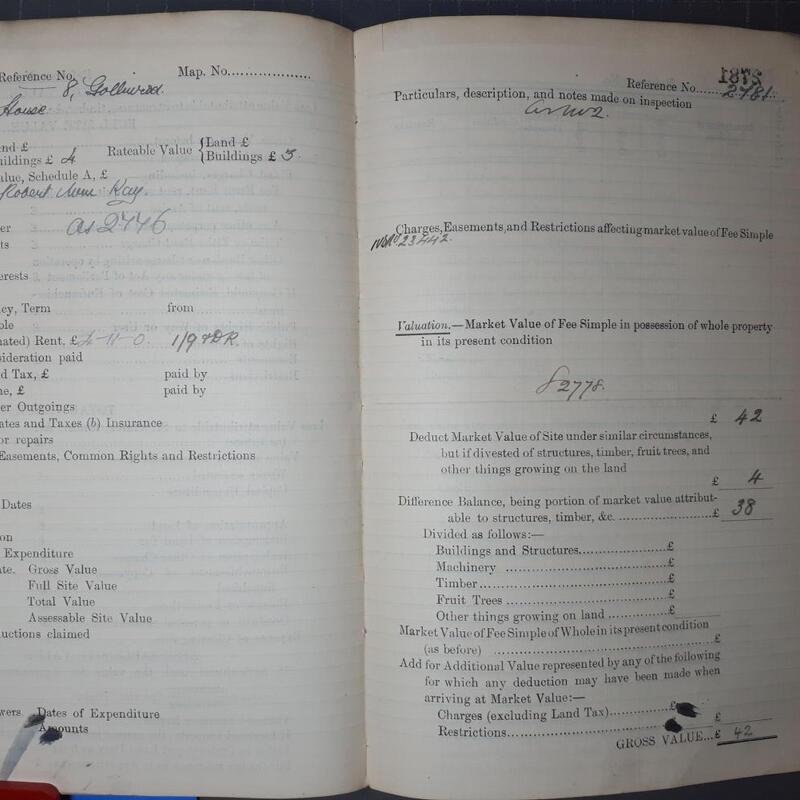 Reference No. Map. No.
8,
House
nd £ Land £
ildings £ 4 Rateable Value Buildings £ 3
alue, Schedule A, £
Robert Kay.
er as 2776
ts
erests
cy, Term from
ole
nated) Rent, £ 4-11-0. 1/9
sideration paid
d Tax, £ paid by
ne, £ paid by
er Outgoings
ates and Taxes (b) Insurance
or repairs
Easements, Common Rights and Restrictions
Dates
on
Expenditure
te. Gross Value
Full Site Value
Total Value
Assessable Site Value
uctions claimed
wers. Dates of Expenditure
Amounts
Reference No. 2781.
Particulars, description, and notes made on inspection
Charges, Easements, and Restrictions affecting market value of Fee Simple
23442.
Valuation.—Market Value of Fee Simple in possession of whole property
in its present condition
2778.
£ 42
Deduct Market Value of Site under similar circumstances,
but if divested of structures, timber, fruit trees, and
other things growing on the land
£ 4
Difference Balance, being portion of market value attribut-
able to structures, timber, &c. £ 38
Divided as follows:—
Buildings and Structures £
Machinery £
Timber £
Fruit Trees £
Other things growing on land £
Market Value of Fee Simple of Whole in its present condition
(as before) £
Add for Additional Value represented by any of the following
for which any deduction may have been made when
arriving at Market Value:—
Charges (excluding Land Tax) £
Restrictions £
GROSS VALUE...£ 42